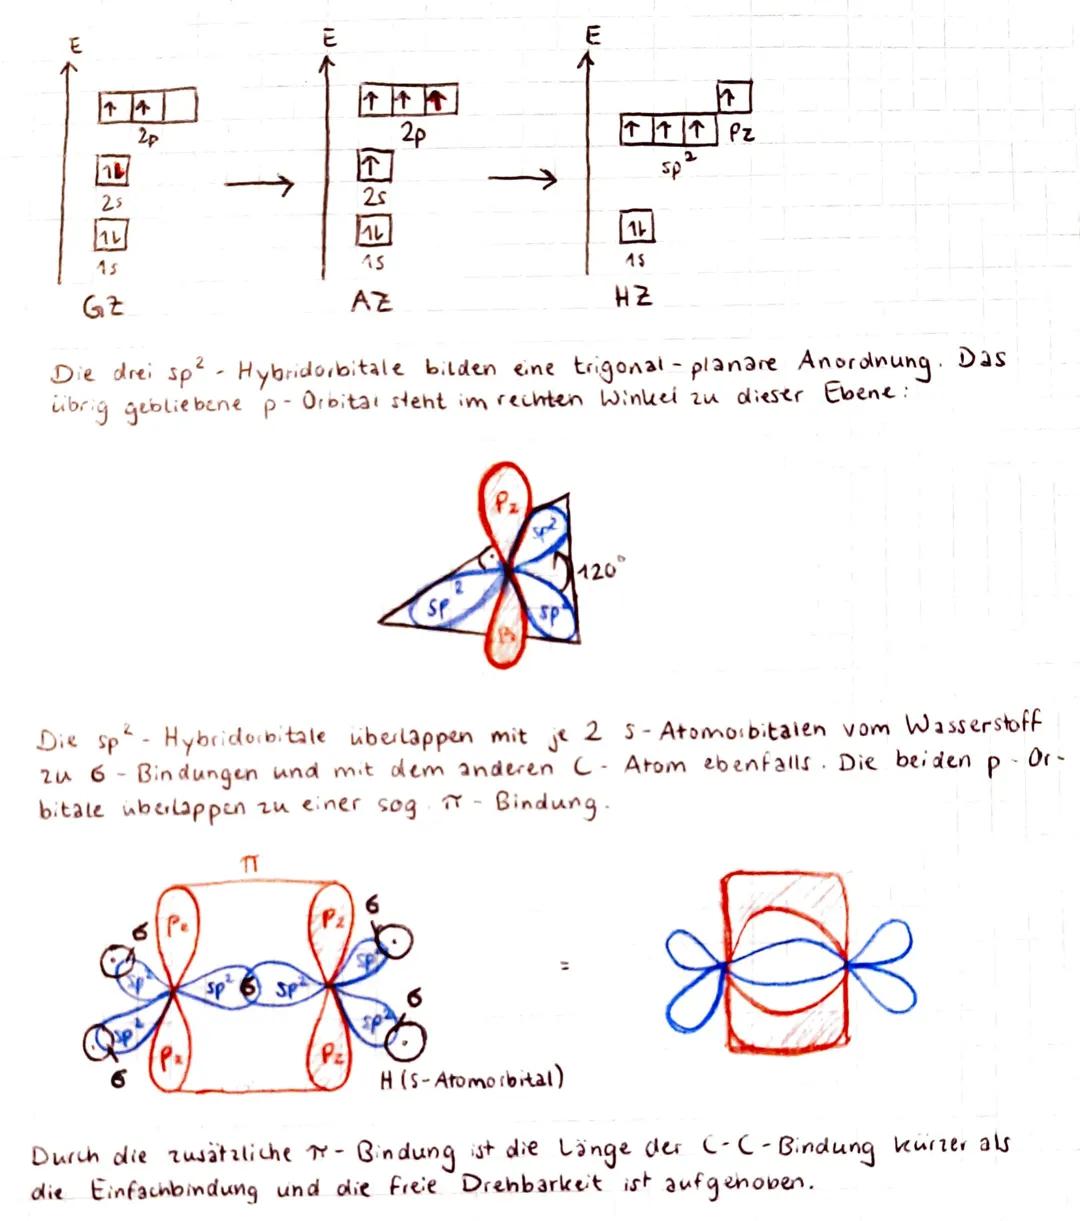 E E E
2p 2p sp² pz
2s 2s
1s 1s 1s
GZ AZ HZ
Die drei sp² - Hybridorbitale bilden eine trigonal - planare Anordnung. Das
übrig gebliebene p - Orbital steht im rechten Winkel zu dieser Ebene:
Pz
sp²
120°
sp² sp²
Pz
Die sp² - Hybridorbitale überlappen mit je 2 s - Atomorbitalen vom Wasserstoff
zu 6 - Bindungen und mit dem anderen C - Atom ebenfalls. Die beiden p - Or-
bitale überlappen zu einer sog. π - Bindung.
π
6 Pz Pz 6
sp² sp² 6 sp² sp²
sp² sp² 6
6 Pz Pz
=
H (s-Atomorbital)
Durch die zusätzliche π - Bindung ist die Länge der C-C-Bindung kürzer als
die Einfachbindung und die freie Drehbarkeit ist aufgehoben.